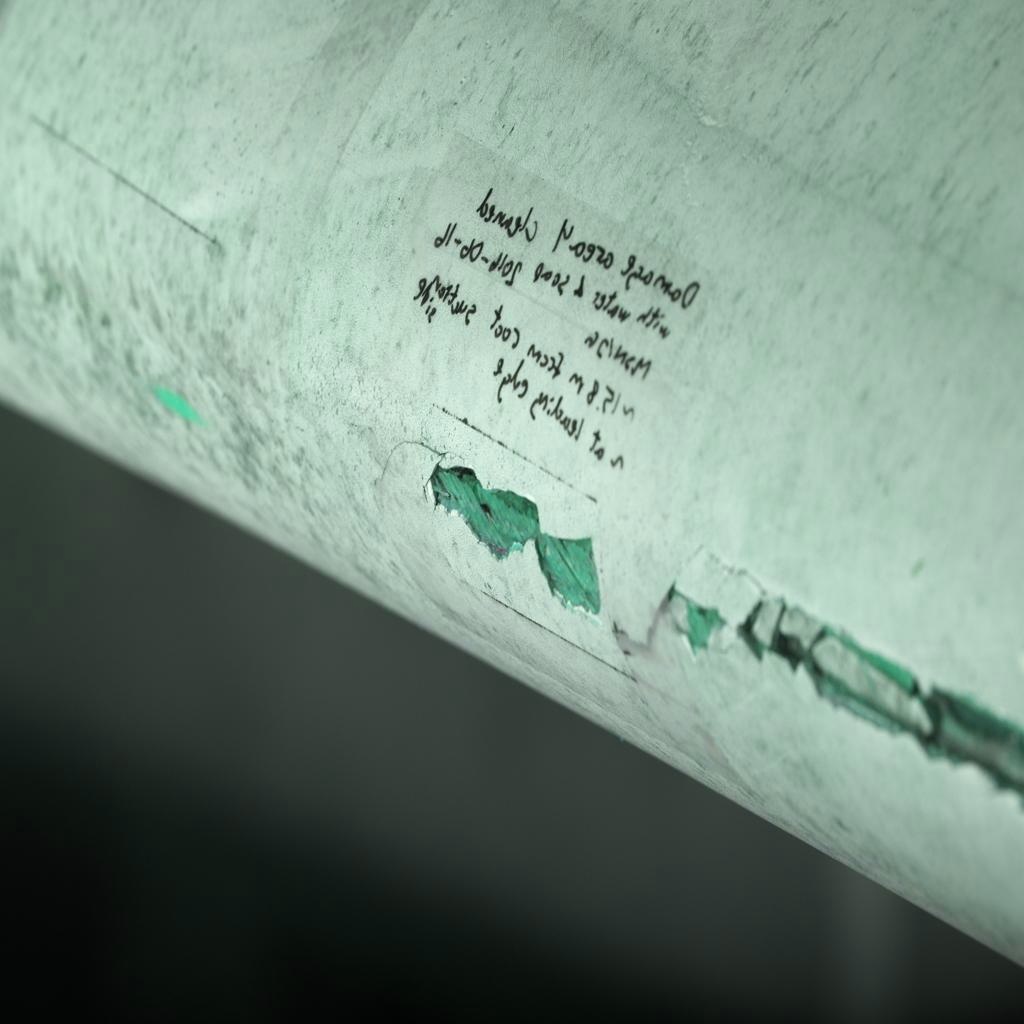 Damage area 4 cleaned
with water & soap 2016-06-16
~15.8 m from root
~ at leading edge